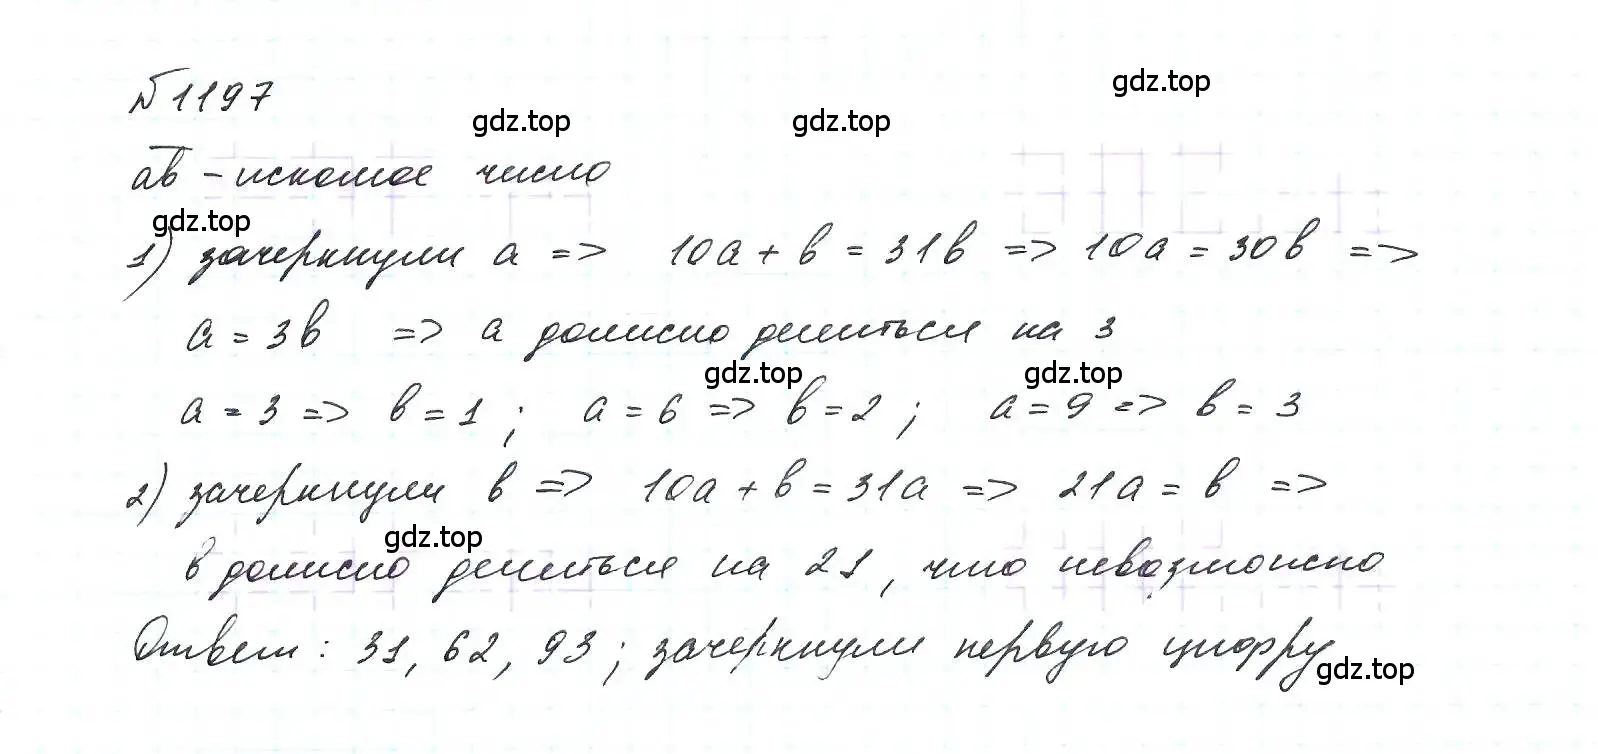 №1197
gdz.top
gdz.top
gdz.top
ab - искомое число
gdz.top
1) зачеркнули a => 10a + b = 31b => 10a = 30b =>
a = 3b => a должно делиться на 3
gdz.top
gdz.top
a = 3 => b = 1 ; a = 6 => b = 2 ; a = 9 => b = 3
2) зачеркнули b => 10a + b = 31a => 21a = b =>
gdz.top
b должно делиться на 21, что невозможно
Ответ: 31, 62, 93; зачеркнули первую цифру
gdz.top